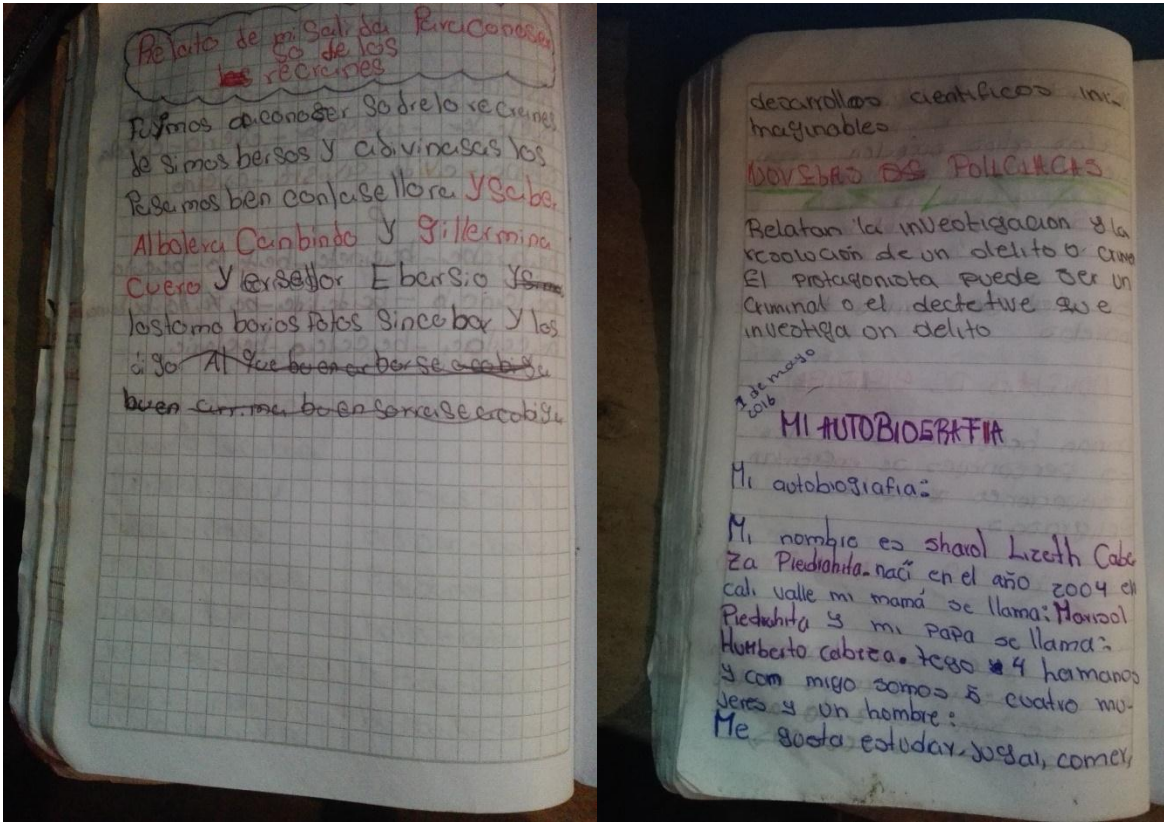 Relato de mi Salida Para Conoser
So de los
recreines
Fuymos a conoser Sodrelo recreines
de simos bersos y adivinasas los
Pasemos ben conlasellora Ysabe
Albolera Canbindo y gillermina
Cuero y lerseñor Ebarsio
lostomo barios Fotos Sincobar y los
digo Al que buen arbor se
buen arrima buen sonrrase
desarrollos cientificos ini-
maginables
NOVELAS DE POLICIACAS
Relatan la investigacion y la
resolución de un delito o crime
El protagonista puede ser un
Criminal o el dectetive que
investiga on delito
1 de mayo
2016
MI AUTOBIOGRAFIA
Mi autobiografia:
Mi nombre es sharol Lizeth Cabe
za Piedrahita. naci en el año 2004 en
cali valle mi mamá se llama: Marisol
Piedrahita y mi papa se llama:
Humberto cabeza. tego 4 hermanos
y con migo somos 5 cuatro mu-
jeres y un hombre:
Me gusta estudar, jugal, comer,